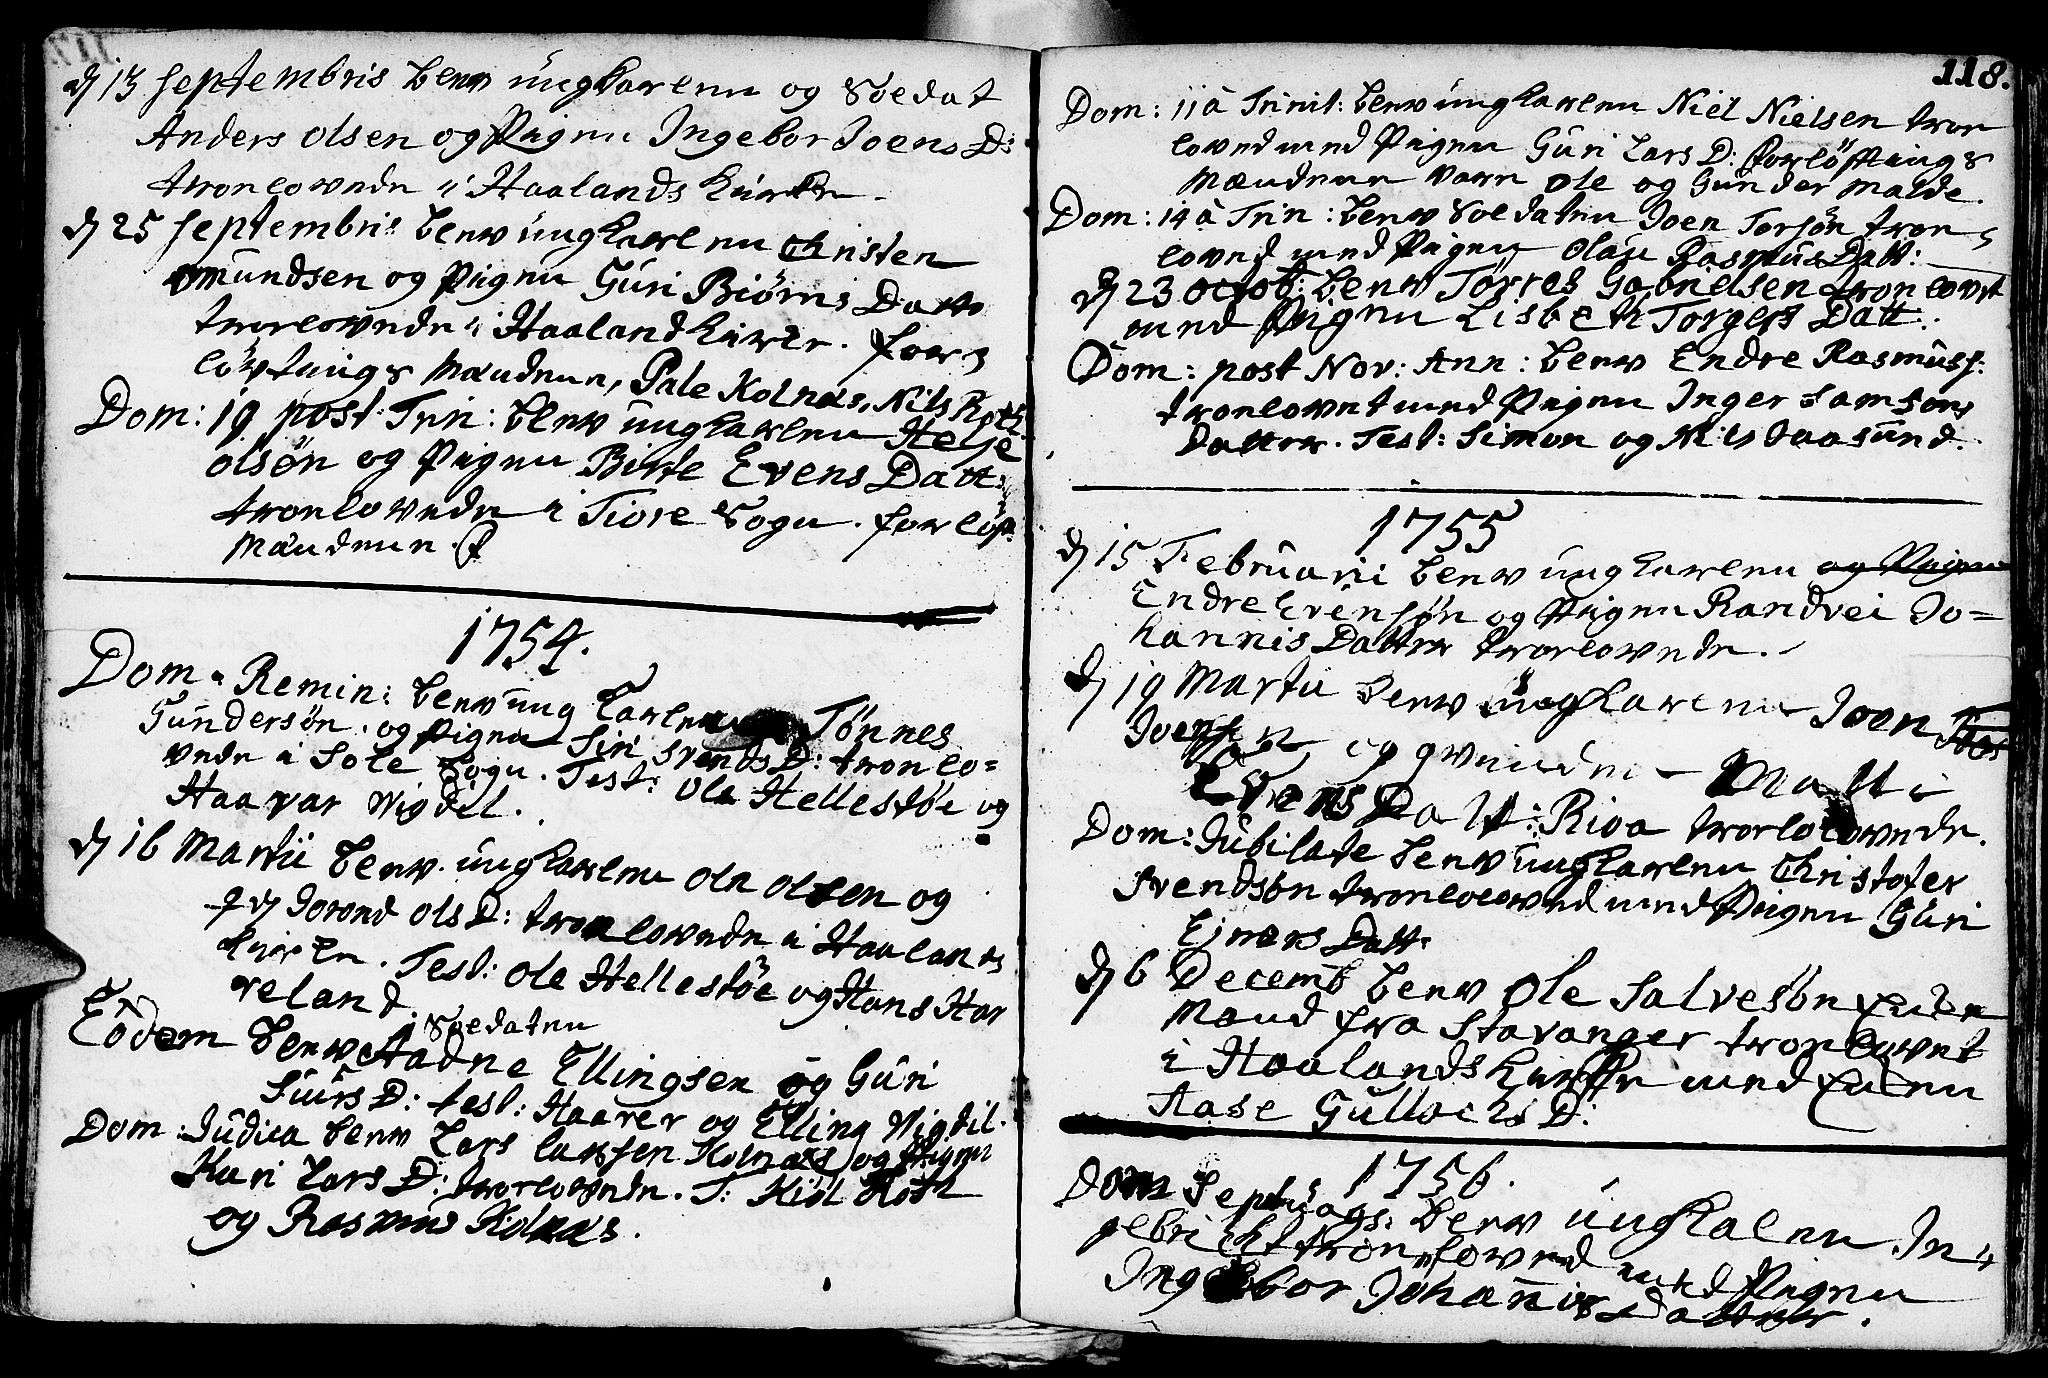 d 13 Septembris blew ungkarlen og Soldat
Anders Olsen og Pigen Ingebor Joens D:
trorlovede i Haalands Kirke.
d 25 Septembris blew ungkarlen Christen
Omundsen og Pigen Guri Biörns Datt
trorlovede i Haaland Kirke. for
löftnings Mændene, Pale Kolnæs, Nils Roth.
Dom: 19 post Trin: blew ungkarlen Helje
Olsön og Pigen Birte Evens Datt:
trorlovede i Tiore Sogn. forlöft:
Mændene.
1754.
Dom. Remin: blew ung karlen Tönnes
Gundersön. og Pigen Siri Svends D: trorlo=
vede i Sole Sogn. Test: Ole Hellestöe og
Haavar Vigdel.
d 16 Martii blew ungkarlen Ole Olsen og
Jorond Ols D: trorlovede i Haalands
Kirke. Test: Ole Hellestöe og Hans Har
veland.
Eodem blew Soldaten
Aadne Ellingsen og Guri
Siurs D: test: Haaver og Elling Vigdil.
Dom: Judica blew Lars Larssen Kolnæs og Pigen
Kari Lars D: trorlovede. T: Kiöl Roth
og Rasmus Kolnæs.
118.
Dom: 11 à Trinit: blew ungkarlen Niel Nielsen tror
loved med Pigen Guri Lars D: forlöftnings
Mændene vare Ole og Gunder Malde.
Dom: 14 à Trin: blew Soldaten Joen Torsön tror
loved med Pigen Olau Rasmus Datt:
d 23 Octob: blew Torres Gabrielsen trorlovet
med Pigen Lisbeth Torgers Datt:
Dom: post Nov: Ann: blew Endre Rasmuss:
trorlovet med Pigen Inger Samsons
Datter. Test: Simon og Nils Taasund.
1755
d 15 Februarii blew ungkarlen og Pigen
Endre Evensön og Pigen Randvei Jo=
hannis Datter trorlovede.
d 19 Martii blew ungkarlen Joen
Joensen og qvinden Malli
Evens Datt: Risa trorlovede.
Dom: Jubilate blew ungkarlen Christofer
Svendsön trorloved med Pigen Guri
Ejners Datt:
d 6 Decemb blew Ole Salvesön Enke
Mand fra Stavanger trorlovet
i Haalands Kirke med Enken
Aase Gullachs D:
1756.
Dom Septuags: blew ungkalen In=
gebricht trorloved med Pigen
Ingebor Johannis Datter.